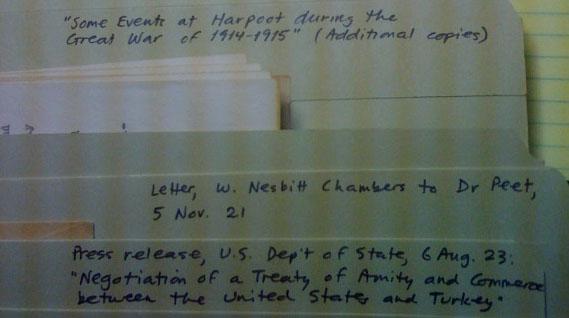 "Some Events at Harpoot during the
Great War of 1914-1915" (Additional copies)
Letter, W. Nesbitt Chambers to Dr Peet,
5 Nov. 21
Press release, U.S. Dep't of State, 6 Aug. 23:
"Negotiation of a Treaty of Amity and Commerce
between the United States and Turkey"